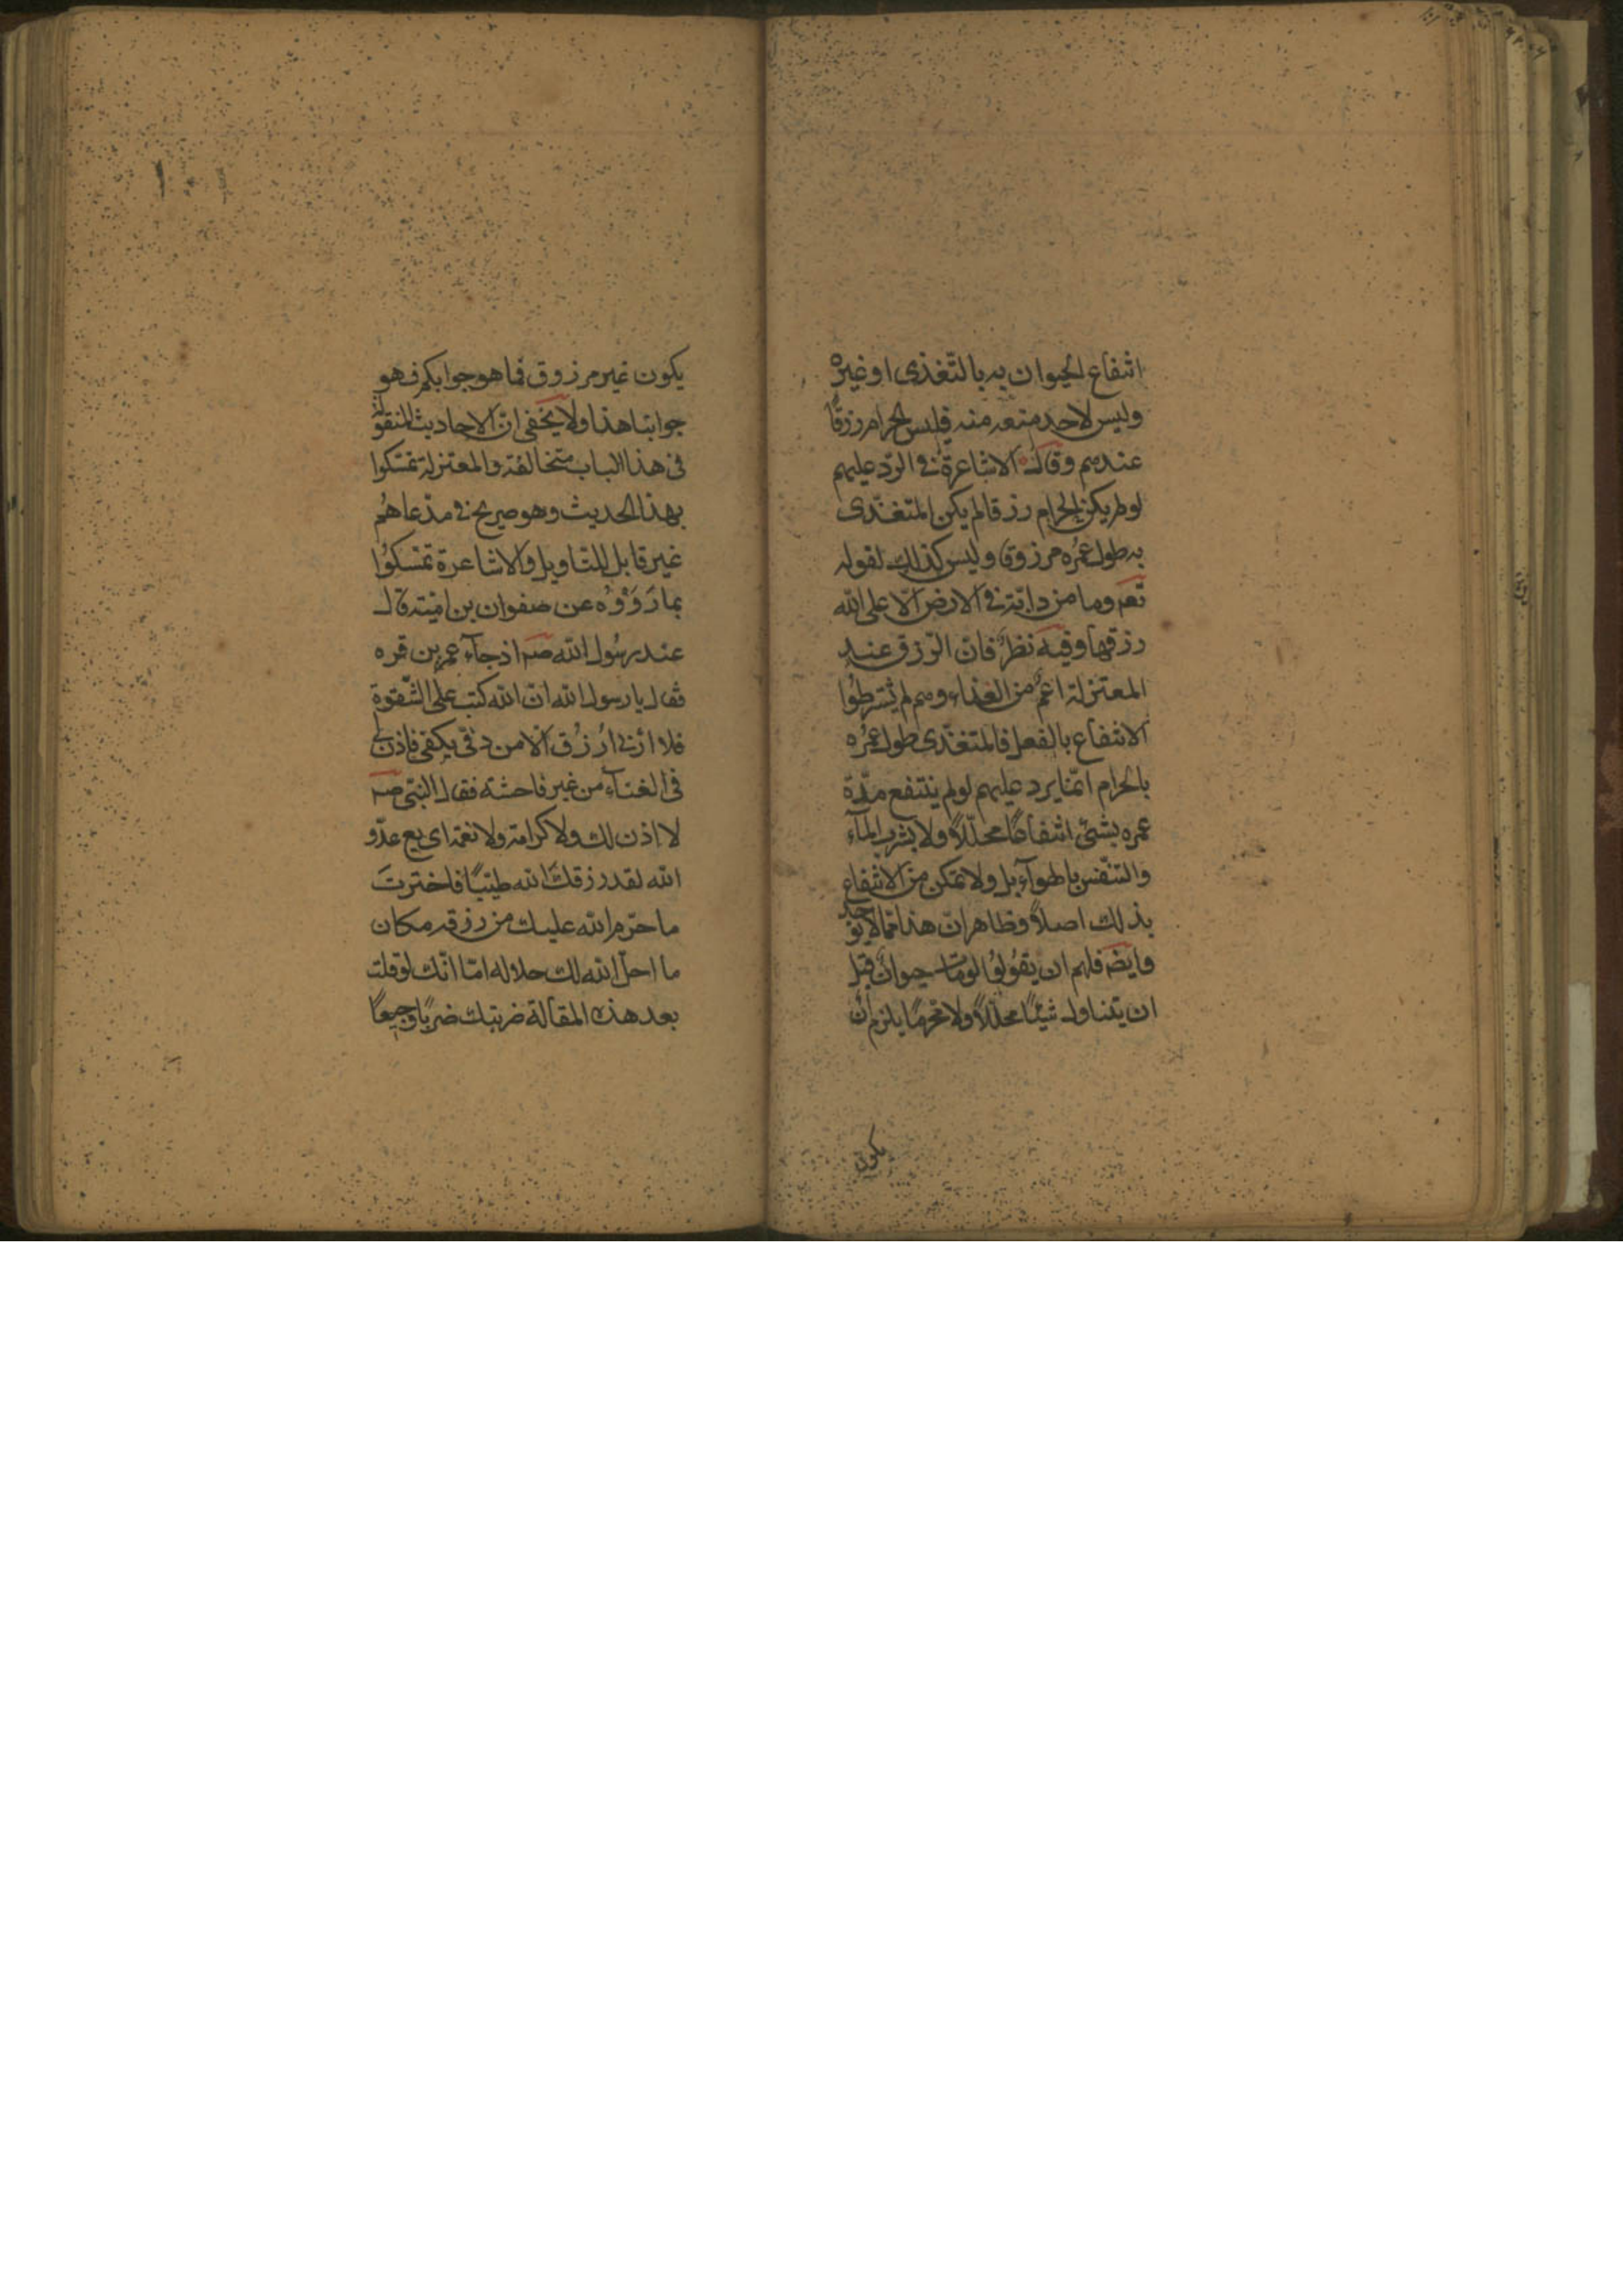 انتفاع الحيوان به بالتّغذى او غيره
وليس لاحد منعه منه فليس الحرام رزقًا
عندهم وقالت الاشاعرة فى الردّ عليهم
لو لم يكن الحرام رزقا لم يكن المتغذّى
به طول عمره مرزوقا وليس كذلك لقوله
تعه وما من دابّة فى الارض الّا على الله
رزقها وفيه نظر فانّ الرّزق عند
المعتزلة اعمّ من الغذاء وهم لم يشترطوا
الانتفاع بالفعل فالمتغذّى طول عمره
بالحرام انّما يرد عليهم لو لم ينتفع مدّة
عمره بشئ انتفاعًا محلّلاً ولا بشرب المآء
والتنّفس بالهوآء بل ولا تمكن من الانتفاع
بذلك اصلاً وظاهر انّ هذا ممّا لا يوجد
وايضه فلهم ان يقولوا لو مات حيوان قبل
ان يتناول شيئًا محلّلاً ولا محرّمًا يلزم ان
يكون
يكون غير مرزوق فما هو جوابكم فهو
جوابنا هذا ولا يخفى انّ الاحاديث المنقولة
فى هذا الباب متخالفة والمعتزلة تمسّكوا
بهذا الحديث وهو صريح فى مدّعاهم
غير قابل للتاويل والاشاعرة تمسّكوا
بما رَوَوْه عن صفوان بن اميّة قال
عند رسول الله صه اذ جآء عمر بن قره
فقال يا رسول الله انّ الله كتب على الشّقوة
فلا ارٰنى اُرزق الّا من دفّى بكفّى فاذن لى
فى الغنآء من غير فاحشة فقال النبّى صه
لا اذن لك ولا كرامة ولا نعمة اى عدّو
الله لقد رزقك الله طيّبًا فاخترتَ
ما حرّم الله عليك من رزقه مكان
ما احلّ الله لك حلاله امّا انّك لو قلت
بعد هذه المقالة ضربتك ضربًا وجيعًا